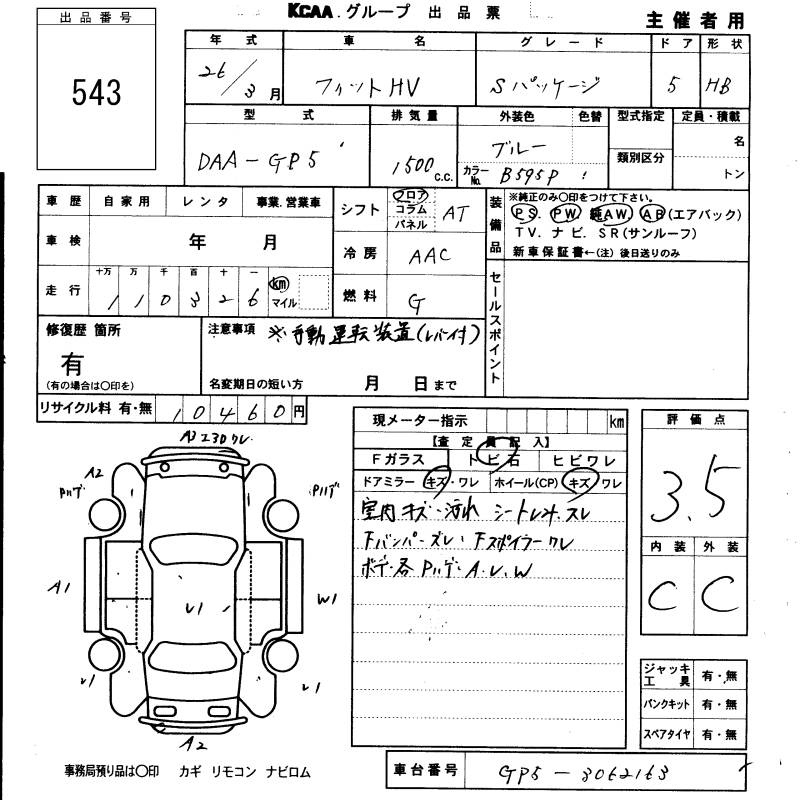 KCAA.グループ 出品票
主催者用
出品番号
543
年式 車名 グレード ドア 形状
26/3月 フィットHV Sパッケージ 5 HB
型式 排気量 外装色 色替 型式指定 定員・積載
DAA-GP5 1500c.c. ブルー 名
カラーNo. B595P 類別区分 トン
車歴 自家用 レンタ 事業.営業車
車検 年 月
走行 十万 万 千 百 十 一
110326 km マイル
シフト フロア コラム パネル AT
冷房 AAC
燃料 G
装備品 ※純正のみ〇印をつけて下さい。
PS. PW 純AW. AB(エアバック)
TV. ナビ. SR(サンルーフ)
新車保証書←(注) 後日送りのみ
セールスポイント
修復歴 箇所
有
(有の場合は〇印を)
注意事項 ※手動運転装置(レバー付)
名変期日の短い方 月 日まで
リサイクル料 有・無 10460円
現メーター指示 km
【査定員記入】
Fガラス トビ石 ヒビワレ
ドアミラー キズ・ワレ ホイール(CP) キズ・ワレ
室内キズ・汚れ シートレザースレ
Fバンパーズレ・Fスポイラーワレ
ボデー各Pハゲ・A.U.W
評価点
3.5
内装 外装
C C
A3 230 ワレ
A2
Pハゲ Pハゲ
A1 U1 W1
U1 U1
A2
ジャッキ工具 有・無
パンクキット 有・無
スペアタイヤ 有・無
事務局預り品は〇印 カギ リモコン ナビロム
車台番号 GP5-3062163